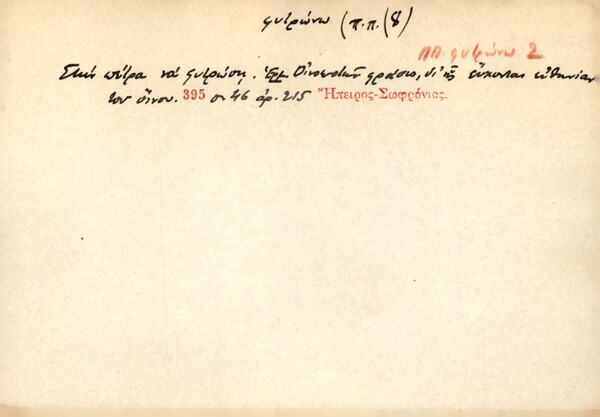 φυτρώνω (π.π. (8)
ΠΠ. φυτρώνω 2
Στην πέτρα να φυτρώση. Ἑρμ. φράσις, δι' ἧς εὔχονται εὐθηνίαν
του οἴνου. 395 σ. 46 ἀρ. 215 Ἤπειρος-Σωφρόνιος.